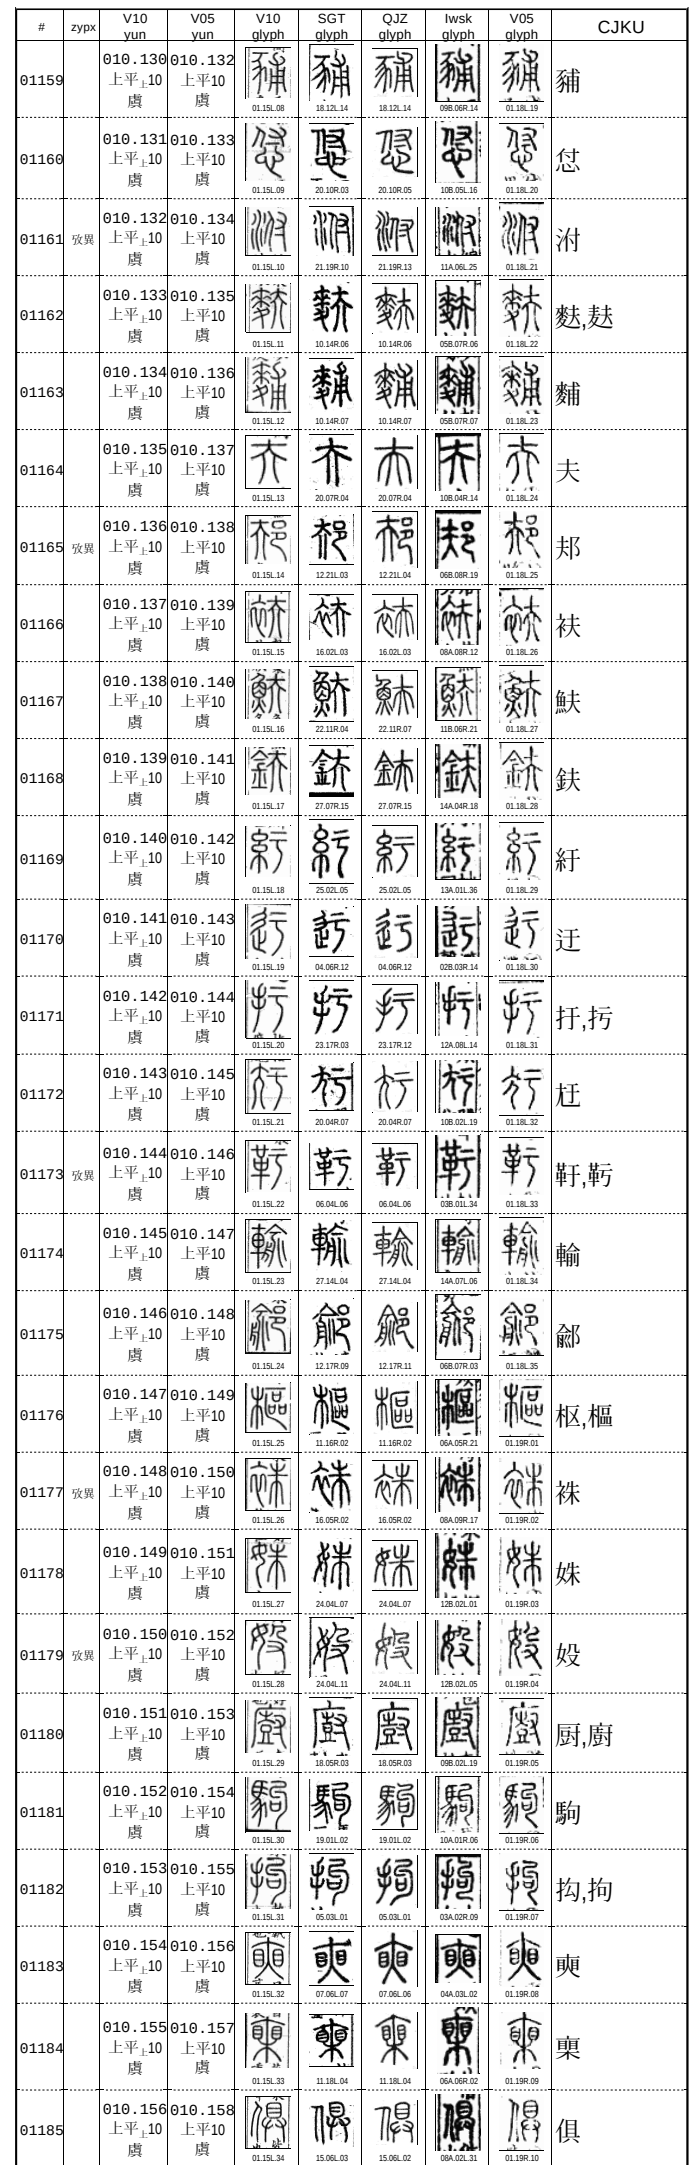 # zypx V10 yun V05 yun V10 glyph SGT glyph QJZ glyph Iwsk glyph V05 glyph CJKU
01159 010.130 上平上10 虞 010.132 上平10 虞 01.15L.08 18.12L.14 18.12L.14 09B.06R.14 01.18L.19 豧
01160 010.131 上平上10 虞 010.133 上平10 虞 01.15L.09 20.10R.03 20.10R.05 10B.05L.16 01.18L.20 怤
01161 攷異 010.132 上平上10 虞 010.134 上平10 虞 01.15L.10 21.19R.10 21.19R.13 11A.06L.25 01.18L.21 泭
01162 010.133 上平上10 虞 010.135 上平10 虞 01.15L.11 10.14R.06 10.14R.06 05B.07R.06 01.18L.22 麩,麸
01163 010.134 上平上10 虞 010.136 上平10 虞 01.15L.12 10.14R.07 10.14R.07 05B.07R.07 01.18L.23 䴸
01164 010.135 上平上10 虞 010.137 上平10 虞 01.15L.13 20.07R.04 20.07R.04 10B.04R.14 01.18L.24 夫
01165 攷異 010.136 上平上10 虞 010.138 上平10 虞 01.15L.14 12.21L.03 12.21L.04 06B.08R.19 01.18L.25 邞
01166 010.137 上平上10 虞 010.139 上平10 虞 01.15L.15 16.02L.03 16.02L.03 08A.08R.12 01.18L.26 衭
01167 010.138 上平上10 虞 010.140 上平10 虞 01.15L.16 22.11R.04 22.11R.07 11B.06R.21 01.18L.27 鮇
01168 010.139 上平上10 虞 010.141 上平10 虞 01.15L.17 27.07R.15 27.07R.15 14A.04R.18 01.18L.28 鈇
01169 010.140 上平上10 虞 010.142 上平10 虞 01.15L.18 25.02L.05 25.02L.05 13A.01L.36 01.18L.29 紆
01170 010.141 上平上10 虞 010.143 上平10 虞 01.15L.19 04.06R.12 04.06R.12 02B.03R.14 01.18L.30 迂
01171 010.142 上平上10 虞 010.144 上平10 虞 01.15L.20 23.17R.03 23.17R.12 12A.08L.14 01.18L.31 扜,扝
01172 010.143 上平上10 虞 010.145 上平10 虞 01.15L.21 20.04R.07 20.04R.07 10B.02L.19 01.18L.32 尪
01173 攷異 010.144 上平上10 虞 010.146 上平10 虞 01.15L.22 06.04L.06 06.04L.06 03B.01L.34 01.18L.33 靬,䩑
01174 010.145 上平上10 虞 010.147 上平10 虞 01.15L.23 27.14L.04 27.14L.04 14A.07L.06 01.18L.34 輸
01175 010.146 上平上10 虞 010.148 上平10 虞 01.15L.24 12.17R.09 12.17R.11 06B.07R.03 01.18L.35 鄃
01176 010.147 上平上10 虞 010.149 上平10 虞 01.15L.25 11.16R.02 11.16R.02 06A.05R.21 01.19R.01 枢,樞
01177 攷異 010.148 上平上10 虞 010.150 上平10 虞 01.15L.26 16.05R.02 16.05R.02 08A.09R.17 01.19R.02 袾
01178 010.149 上平上10 虞 010.151 上平10 虞 01.15L.27 24.04L.07 24.04L.07 12B.02L.01 01.19R.03 姝
01179 攷異 010.150 上平上10 虞 010.152 上平10 虞 01.15L.28 24.04L.11 24.04L.11 12B.02L.05 01.19R.04 㛮
01180 010.151 上平上10 虞 010.153 上平10 虞 01.15L.29 18.05R.03 18.05R.03 09B.02L.19 01.19R.05 厨,廚
01181 010.152 上平上10 虞 010.154 上平10 虞 01.15L.30 19.01L.02 19.01L.02 10A.01R.06 01.19R.06 駒
01182 010.153 上平上10 虞 010.155 上平10 虞 01.15L.31 05.03L.01 05.03L.01 03A.02R.09 01.19R.07 抅,拘
01183 010.154 上平上10 虞 010.156 上平10 虞 01.15L.32 07.06L.07 07.06L.06 04A.03L.02 01.19R.08
01184 010.155 上平上10 虞 010.157 上平10 虞 01.15L.33 11.18L.04 11.18L.04 06A.06R.02 01.19R.09
01185 010.156 上平上10 虞 010.158 上平10 虞 01.15L.34 15.06L.03 15.06L.02 08A.02L.31 01.19R.10 俱